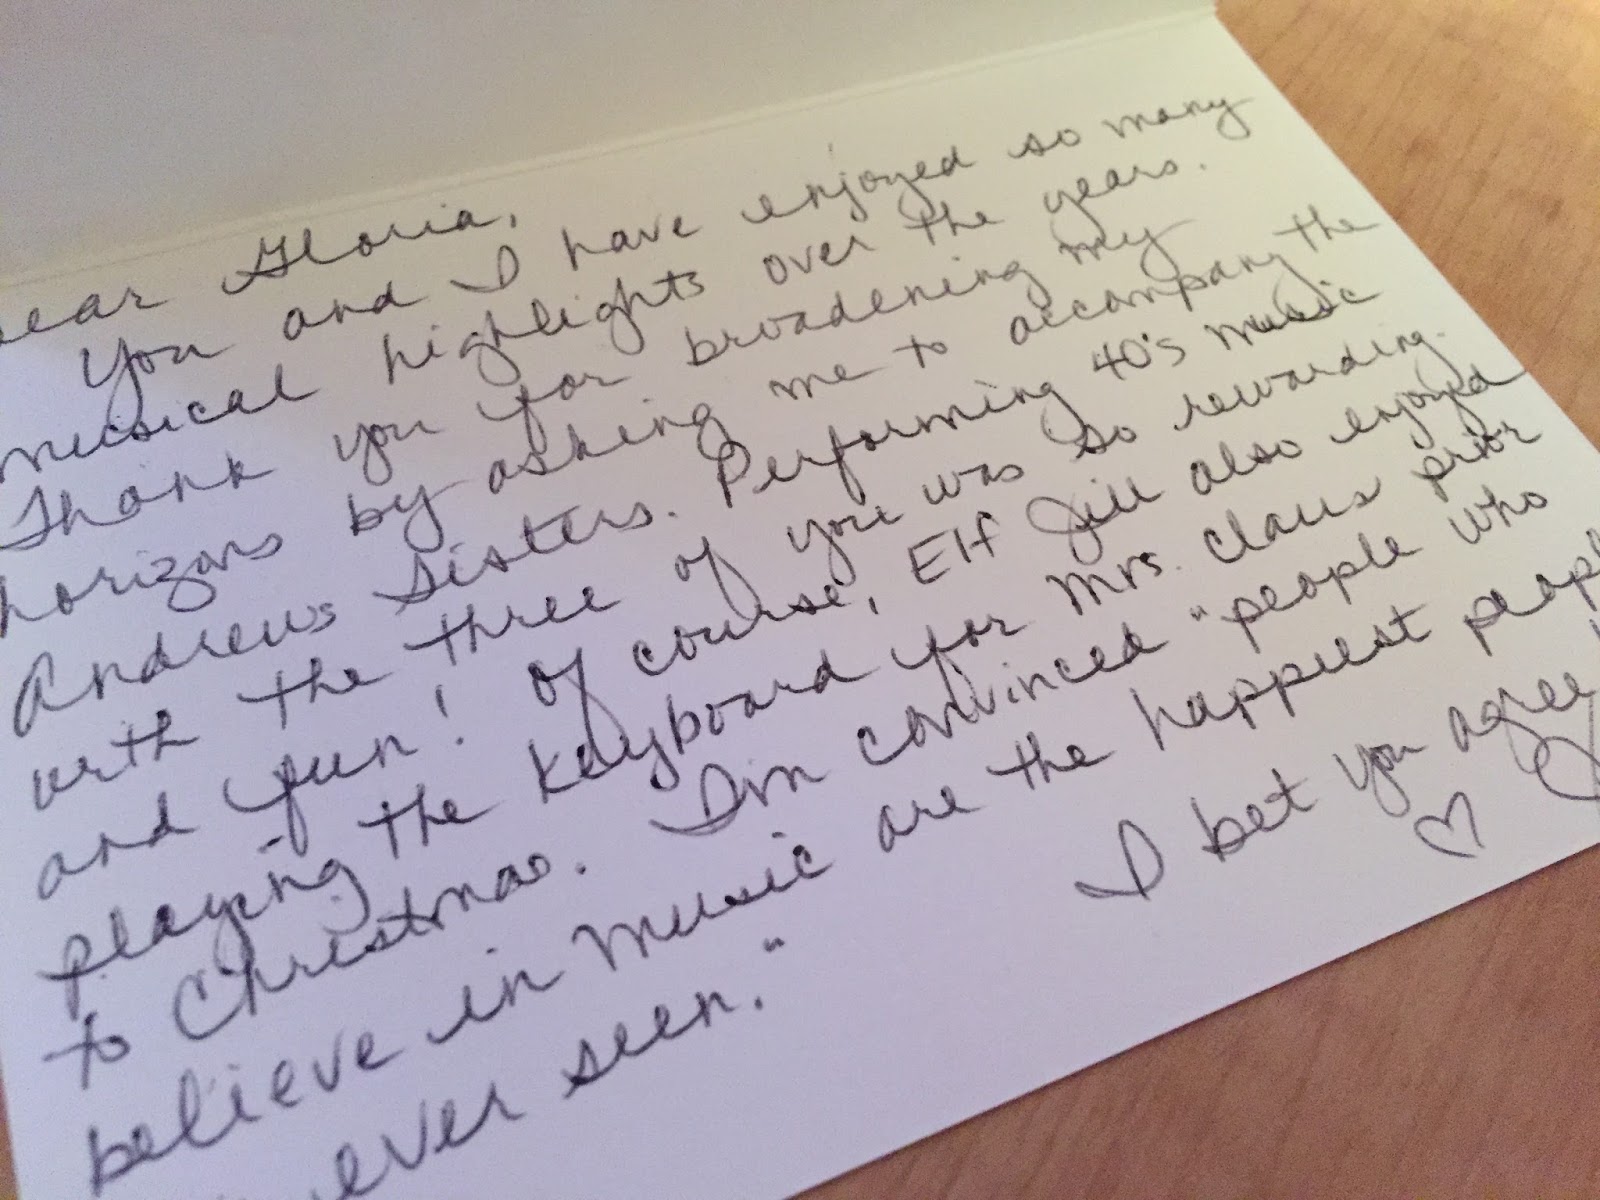 Dear Gloria,
You and I have enjoyed so many
musical highlights over the years.
Thank you for broadening my
horizons by asking me to accompany the
Andrews Sisters. Performing 40's music
with the three of you was so rewarding
and fun! Of course, Elf Jill also enjoyed
playing the keyboard for Mrs. Claus prior
to Christmas. I'm convinced "people who
believe in music are the happiest people
ever seen."
I bet you agree
♡